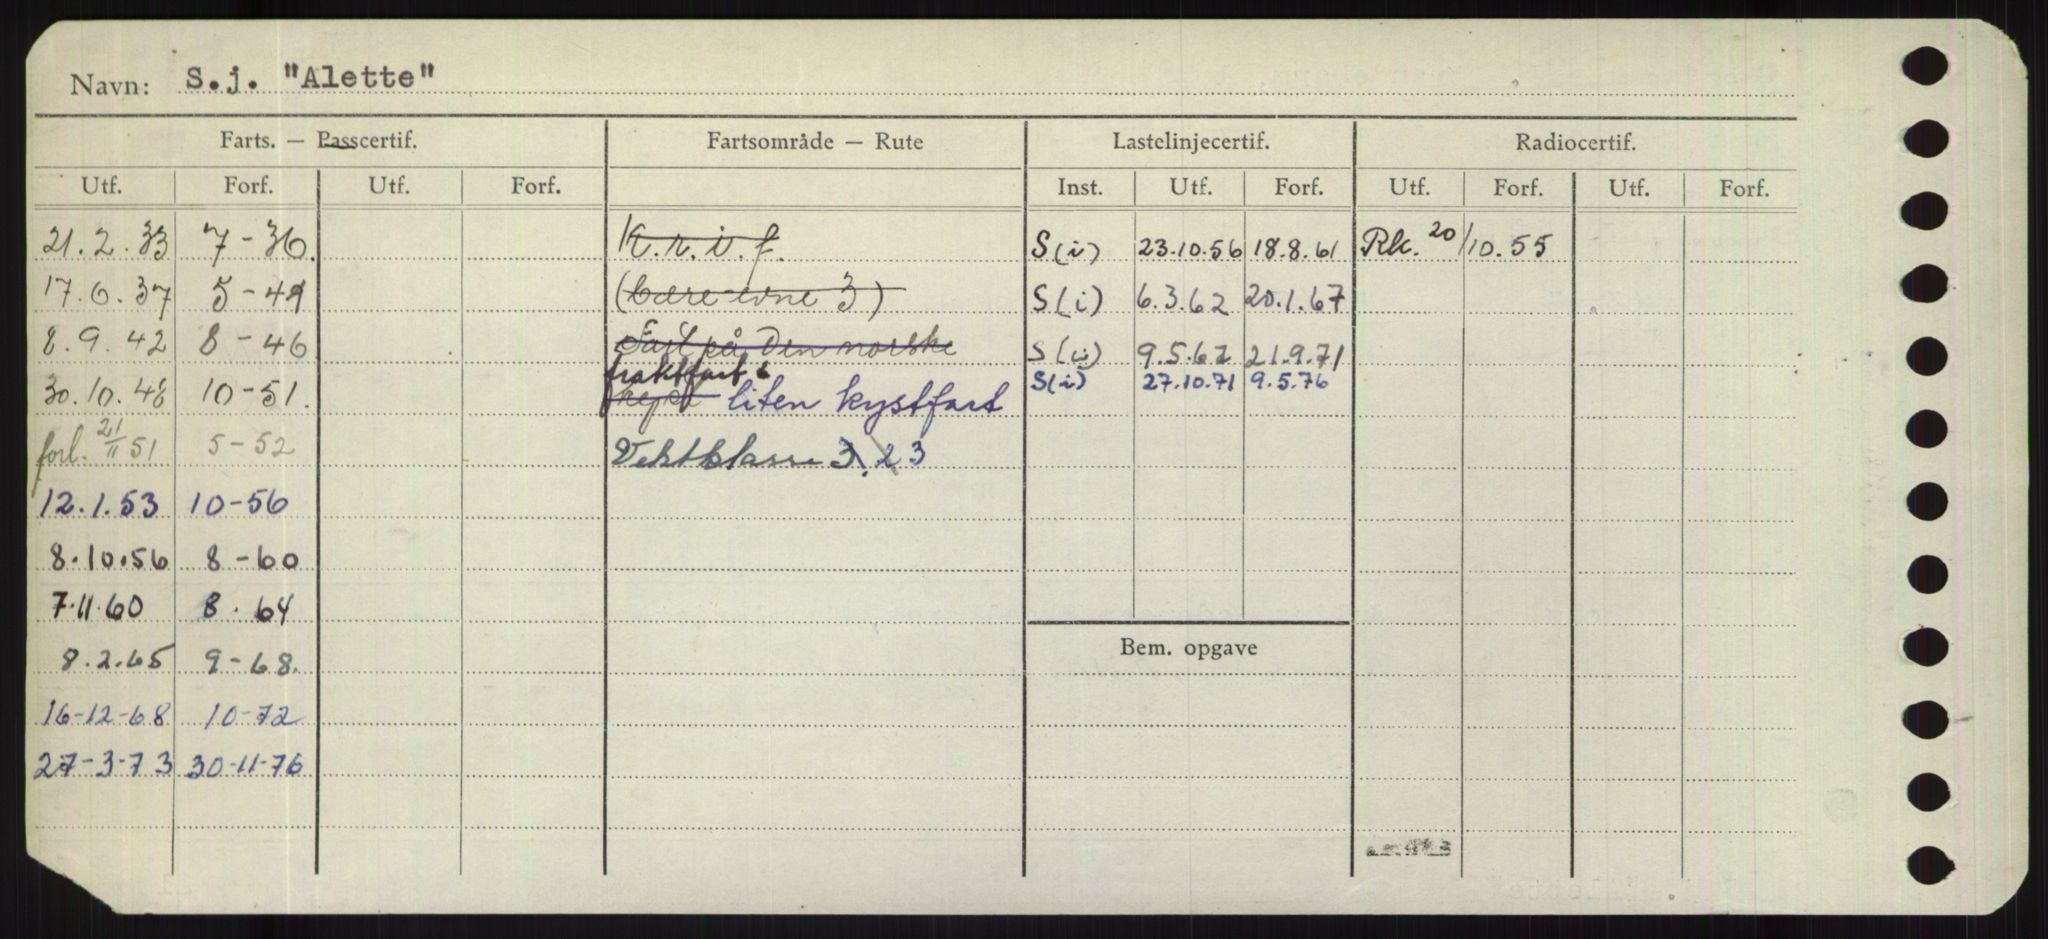 Navn: S.j. "Alette"
Farts. — Passcertif. Fartsområde — Rute Lastelinjecertif. Radiocertif.
Utf. Forf. Utf. Forf. Inst. Utf. Forf. Utf. Forf. Utf. Forf.
21.2.33 7-36. K.r.i.f. S(i) 23.10.56 18.8.61 Rk. 20/10.55
17.6.37 5-41 (bære-evne 3) S(i) 6.3.62 20.1.67
8.9.42 8-46 Fart på den norske S(i) 9.5.67 21.9.71
fraktfart i S(i) 27.10.71 9.5.76
30.10.48 10-51. liten kystfart
forl. 21/11 51 5-52 Vektklasse 3. 2 3
12.1.53 10-56
8.10.56 8-60
7.11.60 8.64
Bem. opgave
8.2.65 9-68.
16-12-68 10-72
27-3-73 30-11-76